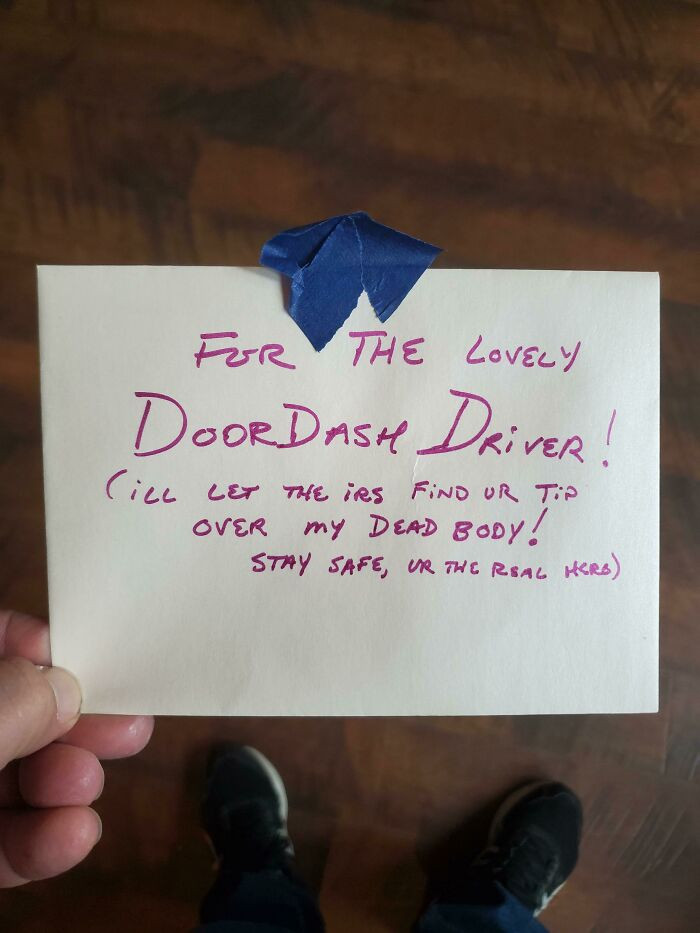 FOR THE LOVELY
DOORDASH DRIVER!
(iLL LET THE iRS FiND UR TiP
OVER MY DEAD BODY!
STAY SAFE, UR THE REAL HERO)